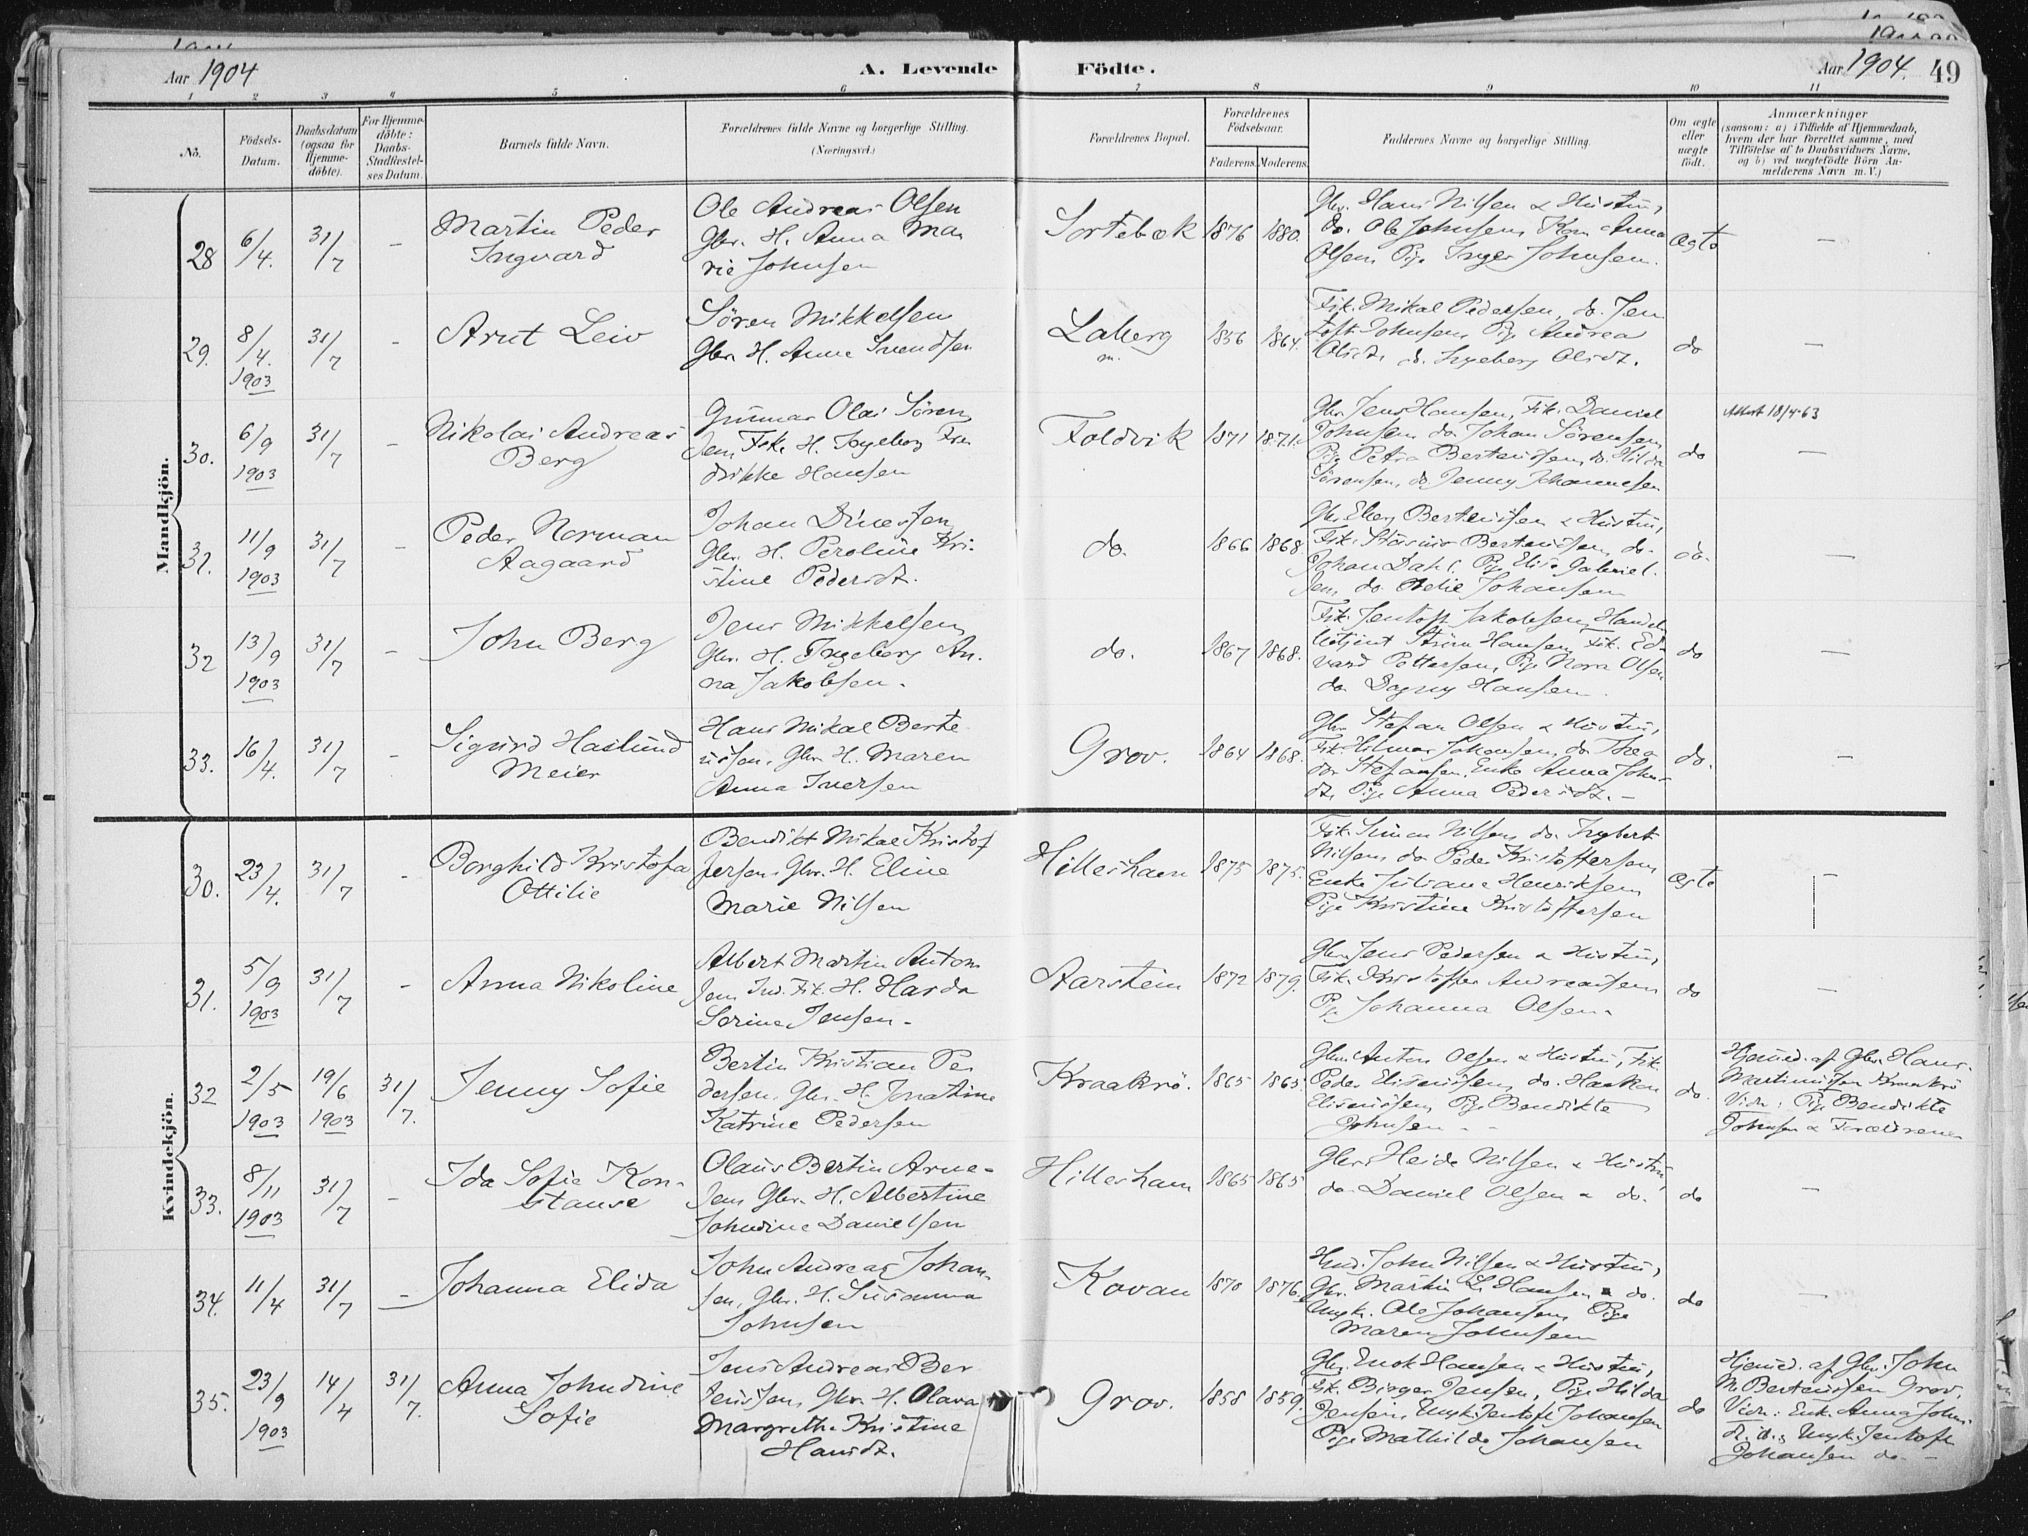 Aar 1904
A. Levende
Födte.
Aar 1904. 49
1 2 3 4 5 6 7 8 9 10 11
No.
Födsels-
Datum.
Daabsdatum
(ogsaa for
Hjemme-
döbte).
For Hjemme-
döbte:
Daabs-
Stadfæstel-
ses Datum.
Barnets fulde Navn.
Forældrenes fulde Navne og borgerlige Stilling.
(Næringsvei.)
Forældrenes Bopæl.
Forældrenes
Födselsaar.
Faderens. Moderens.
Faddernes Navne og borgerlige Stilling.
Om ægte
eller
uægte
født.
Anmærkninger
(saasom: a) i Tilfælde af Hjemmedaab,
hvem der har forrettet samme, med
Tilföielse af to Daabsvidners Navne,
og b) ved uægtefödte Börn An-
melderens Navn m. V.)
Mandkjön.
28 6/4. 31/7 -
Martin Peder
Ingvard
Ole Andreas Olsen
Gbr. H. Anna Ma
rie Johnsen
Sortebæk 1876 1880.
Gbr. Hans Nilsen & Hustru,
do. Ole Johnsen, Kon Anna
Olsen, Pige Inger Johnsen.
ægte —
29. 8/4. 31/7 -
Arnt Leiv
Sören Mikkelsen
Gbr. H. Anne Svendsen
Laberg
m.
1856 1864.
Fisk. Mikal Pedersen, do. Jen
toft Johnsen, Pige Andrea
Olsdt., do. Ingeborg Olsdt.
do —
30. 6/9 1903 31/7 -
Nikolai Andreas
Berg
Gunnar Olai Sören
sen, Fisk. H. Ingeborg Fre
drikke Hansen
Foldvik 1871 1871.
Gbr. Jens Hansen, Fisk. Daniel
Johnsen, do Johan Sörensen,
Pige Petra Berteussen, do. Hilda
Sörensen, do Jenny Johannesen
do
Attest 18/4-63
—
31. 11/9 1903 31/7 -
Peder Norman
Aagaard
Johan Dinessen
Gbr. H. Peroline Kri-
stine Pedersdt.
do. 1866 1868.
Berteussen & Hustru,
Berteussen, do.
Johan Dahl, Pige Elise Gabriel-
sen, do Johansen
do. —
32 13/9 1903 31/7 -
John Berg
Jens Mikkelsen,
Gbr. H. Ingeborg An-
na Jakobsen.
do. 1867 1868.
Fisk. Jentoft Jakobsen, Handels
betjent Hansen, Fisk. Ed-
vard Pettersen, Pige Nora Olsen
do Dagny Hansen.
do —
33. 16/4. 31/7 -
Sigurd Haslund
Meier
Hans Mikal Berte
ussen, Gbr. H. Maren
Anna Iversen
Grov. 1864 1868.
Gbr. Stefan Olsen & Hustru,
Fisk. Hilmar Johansen, do Theo
dor Stefansen, Enke Anna Johns-
dt., Pige Anna Pedersdt. —
do. —
Kvindekjön.
30. 23/4. 31/7 -
Borghild Kristofa
Ottilie
Benedikt Mikal Kristof
fersen, Gbr. H. Eline
Marie Nilsen
Hilleshavn 1875 1875.
Fisk. Simon Nilsen, do. Ingbert
Nilsen, do Peder Kristoffersen,
Enke Juliane Henriksen,
Pige Kristine Kristoffersen
ægte —
31. 5/9 1903 31/7 -
Anna Nikoline
Albert Martin Anton
sen, Ind. Fisk. H. Harda
Serine Jensen.
Aarstein 1872 1879.
Gbr. Jens Pedersen & Hustru,
Fisk. Kristoffer Andreassen,
Pige Johanna Olsen.
do —
32 2/5 1903 19/6 1903 31/7.
Jenny Sofie
Bertin Kristian Pe
dersen, Gbr. H. Jonathine
Katrine Pedersen
Kraakrö. 1865 1865.
Gbr. Anton Olsen & Hustru, Fisk
Peder Eliseussen, do. Haakon
Eliseussen, Pige Bendikte
Johnsen
do.
Hjemmed. af Gbr. Hans
Martinussen Kraakrö
Vidn: Pige Bendikte
Johnsen & Forældrene
33. 8/11 1903 31/7 -
Ida Sofie Kon-
stanse
Olaus Bertin Arne-
sen, Gbr. H. Albertine
Johndine Danielsen
Hilleshavn 1865 1865
Gbr. Heide Nilsen & Hustru,
do Daniel Olsen & do.
do —
34. 11/4 31/7 —
Johanna Elida
John Andreas Johan-
sen, Gbr. H. Susanna
Johnsen
Kovan 1870 1876.
John Nilsen & Hustru,
Gbr. Martin L. Hansen & do.
Ungk. Ole Johansen, Pige
Maren Johnsen
do —
35. 23/9 1903 14/4 31/7.
Anna Johndine
Sofie
Jens Andreas Ber
teussen, Gbr. H. Olava
Margrethe Kristine
Hansdt.
Grov. 1858 1859.
Gbr. Enok Hansen & Hustru,
Fisk. Birger Jensen, Pige Hilda
Jensen, Ungk. Jentoft Johansen
Pige Mathilde Johansen
do
Hjemmed. af Gbr. John
M. Berteussen Grov.
Vidn: Enk. Anna Johns-
dt. do, Ungk. Jentoft
Johansen do. —